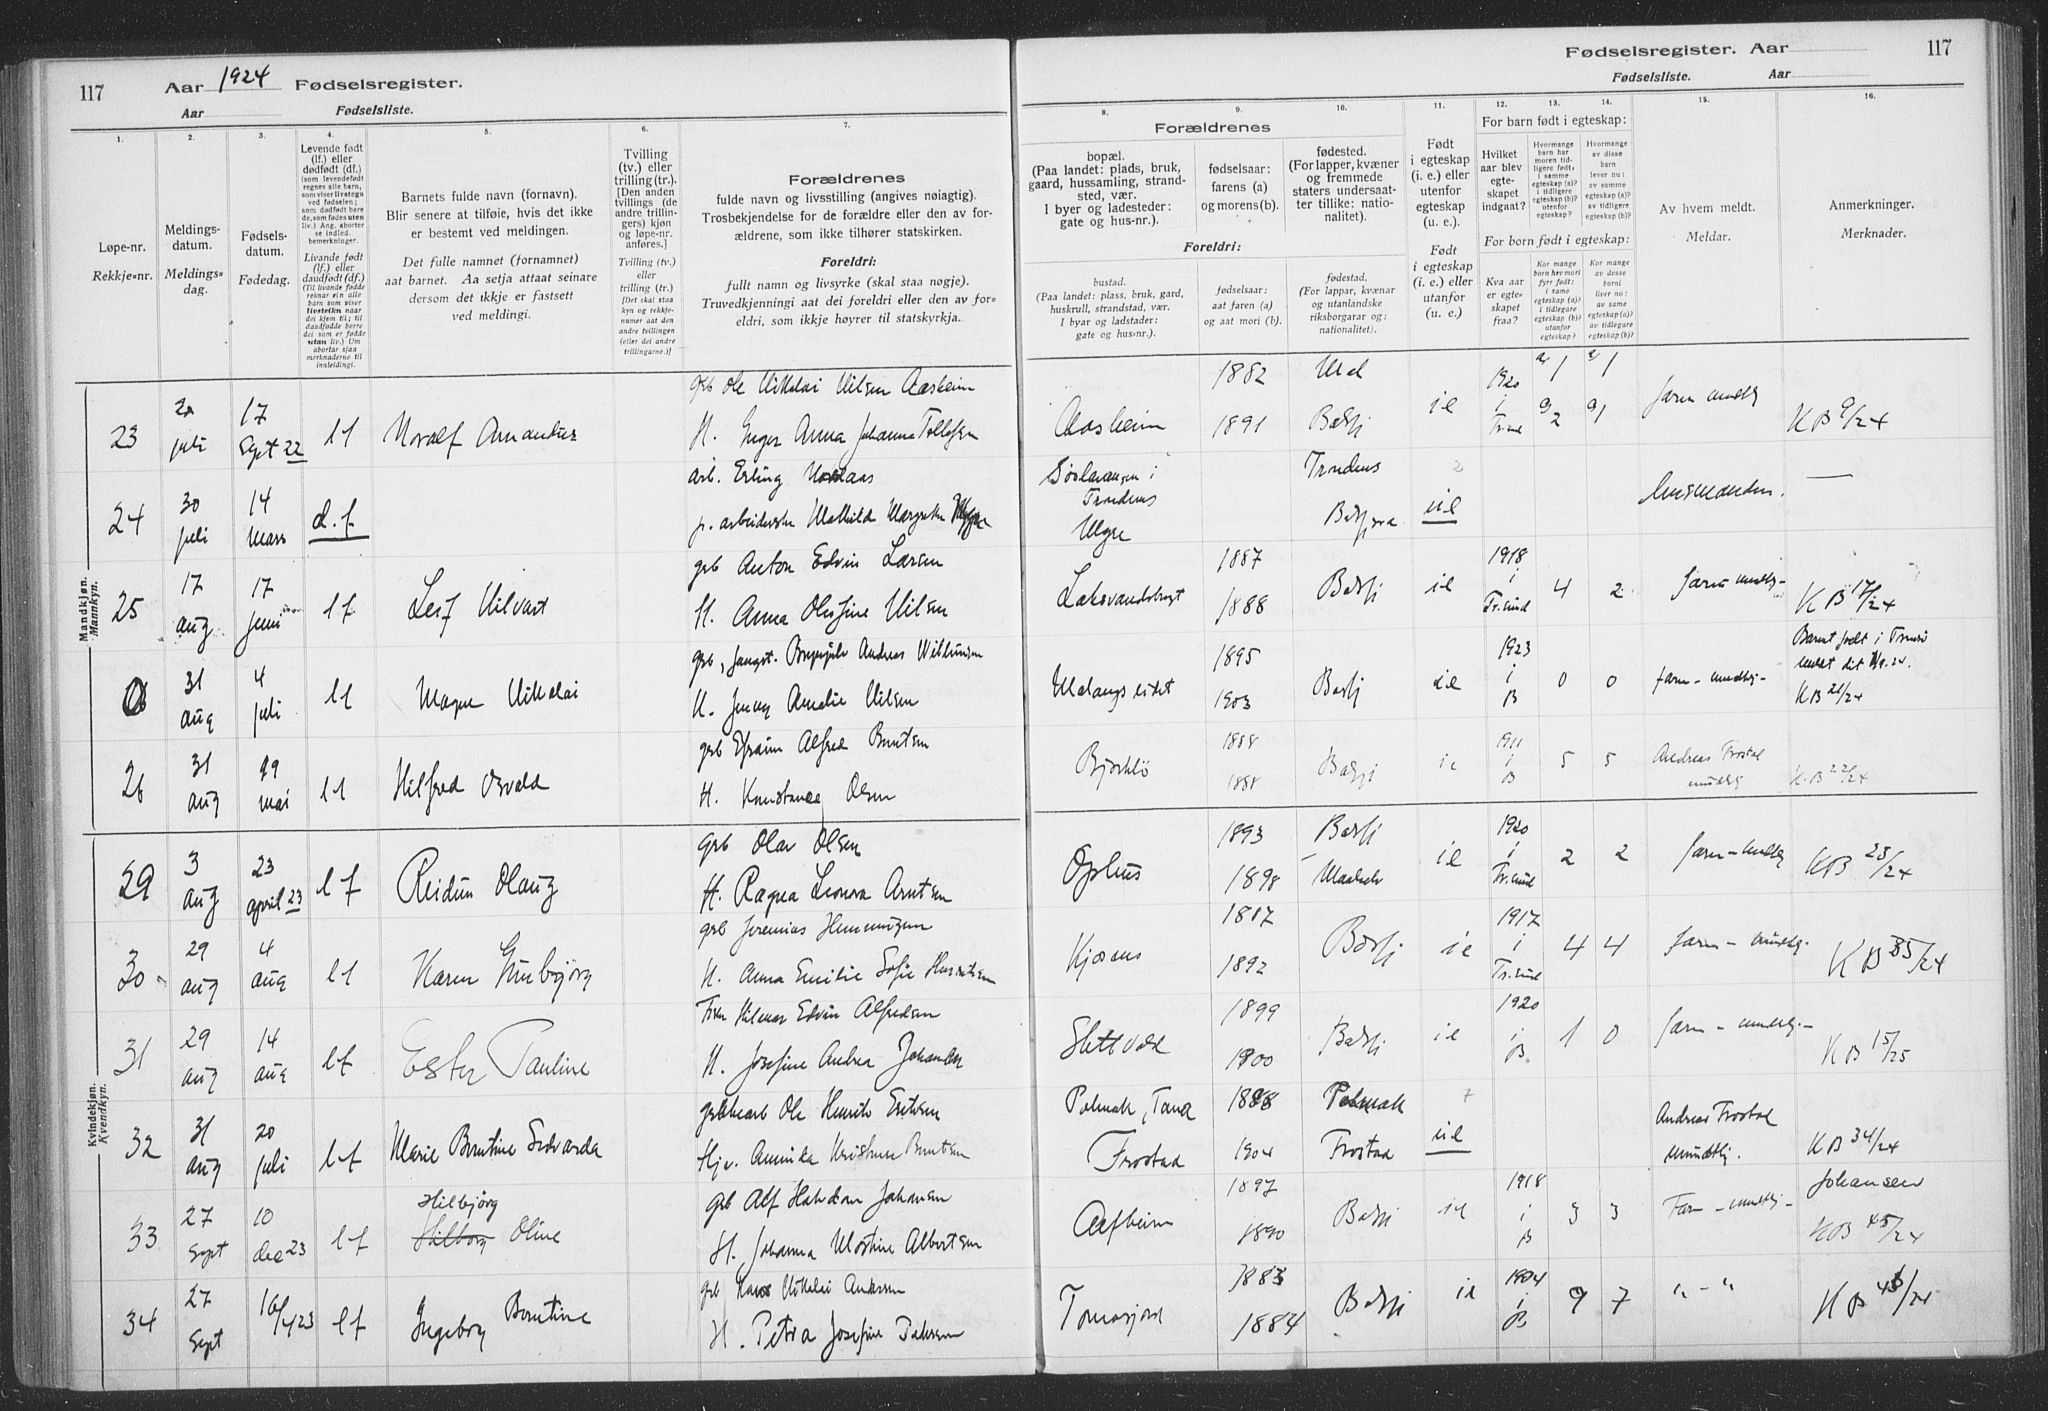 117 Aar 1924 Fødselsregister.
Aar Fødselsliste.
Fødselsregister. Aar 117
Fødselsliste. Aar
1. 2. 3. 4. 5. 6. 7.
Løpe-nr.
Rekkje-nr.
Meldings-
datum.
Meldings-
dag.
Fødsels-
datum.
Fødedag.
Levende født
(lf.) eller
dødfødt (df.)
(som levendefødt
regnes alle barn,
som viser livstegn
ved fødselen;
som dødfødt bare
de, som fødes uten
liv.) Ang. aborter
se indled.
bemerkninger.
Livande født
(lf.) eller
daudfødt (df.)
(Til livande fødde
reknar ein alle
barn som viser
livsteikn naar
dei kjem til; til
daudfødde berre
dei som er fødde
utan liv.) Um
abortar sjaa
merknaderne til
innleidingi.
Barnets fulde navn (fornavn).
Blir senere at tilføie, hvis det ikke
er bestemt ved meldingen.
Det fulle namnet (fornamnet)
aat barnet. Aa setja attaat seinare
dersom det ikkje er fastsett
ved meldingi.
Tvilling
(tv.) eller
trilling (tr.).
[Den anden
tvillings (de
andre trillin-
gers) kjøn
og løpe-nr.
anføres.]
Tvilling (tv.)
eller
trilling (tr.)
[Det skal staa
kyn og rekkje-
numer aat den
andre tvillingen
(eller dei andre
trillingarne.)]
Forældrenes
fulde navn og livsstilling (angives nøiagtig).
Trosbekjendelse for de forældre eller den av for-
ældrene, som ikke tilhører statskirken.
Foreldri:
fullt namn og livsyrke (skal staa nøgje).
Truvedkjenningi aat dei foreldri eller den av for-
eldri, som ikkje høyrer til statskyrkja.
8. 9. 10. 11. 12. 13. 14. 15. 16.
Forældrenes
bopæl.
(Paa landet: plads, bruk,
gaard, hussamling, strand-
sted, vær.
I byer og ladesteder:
gate og hus-nr.).
Foreldri:
bustad.
(Paa landet: plass, bruk, gard,
huskrull, strandstad, vær.
I byar og ladstader:
gate og hus-nr.).
fødselsaar:
farens (a)
og morens (b).
fødselsaar:
aat faren (a)
og aat mori (b).
fødested.
(For lapper, kvæner
og fremmede
staters undersaat-
ter tillike: natio-
nalitet).
fødestad.
(For lappar, kvænar
og utanlandske
riksborgarar og:
nationalitet).
Født
i egteskap
(i. e.) eller
utenfor
egteskap
(u. e.).
Født
i egteskap
(i. e.) eller
utanfor
(u. e.).
For barn født i egteskap:
Hvilket
aar blev
egte-
skapet
indgaat?
Hvormange
barn har
moren tid-
ligere født,
i samme
egteskap (a)?
i tidligere
egteskap (b)?
utenfor
egteskap?
Hvormange
av disse
barn
lever nu:
av samme
egteskap (a)?
av tidligere
egteskap (b)?
For born født i egteskap:
Kva aar
er egte-
skapet
fraa?
Kor mange
born hev mori
fyrr født:
i same
egteskap (a)?
i tidlegare
egteskap (b)?
utanfor
egteskap?
Kor mange
av desse
borni
liver no:
av same
egteskap (a)?
av tidlegare
egteskap (b)?
Av hvem meldt.
Meldar.
Anmerkninger.
Merknader.
Mandkjøn.
Mannkyn.
23 20 juli 17 Sept 22 lf Noralf Amandus
grb Ole Nikolai Nilsen Aasheim
H. Inger Anna Johanna Tollefsen
Aasheim 1882 1891 Mal Balsfj ie 1920 i Tr.sund a 1 2 a 1 1 faren mundtlig KB 9/24
24 30 juli 14 mars d.f
arb. Erling
p. arbeiderske Mathilde Margrethe
i Trondenes Trondenes Balsfjord uel —
25 17 aug 17 juni lf Leif Hilvart
grb Anton Edvin Larsen
H. Anna Olufine Nilsen
1887 1888 Balsfj ie 1918 i Tr.sund 4 2 faren mundtlig KB 17/24
31 aug 4 juli lf Magne Nikolai
grb, Andreas Willumsen
H. Jenny Amalie Nilsen
Malangseidet 1895 1903 Balsfj ie 1923 i B 0 0 faren – mundtlig –
Barnet født i Tromsø
KB 21/24
26 31 aug 29 mai lf Hilfred Osvald
grb Efraim Alfred Berntsen
H. Konstance Olsen
Bjorklø 1888 1888 Balsfj ie 1911 i B 5 5 Andreas Frostad mundtlig K.B 22/24
Kvindekjøn.
Kvendkyn.
29 3 aug 23 april 23 lf Reidun Olaug
grb Olav Olsen
H. Ragna Leonora Arntsen
Ophus 1893 1898 Balsfj Maalselv ie 1920 i Tr.sund 2 2 faren – mundtlig KB 23/24
30 29 aug 4 aug lf Karen Gunbjørg
grb Jeremias Hemmingsen
H. Anna Emilie Sofie
Kjosnes 1887 1892 Balsfj ie 1917 i Tr.sund 4 4 faren – mundtlig KB 35/24
31 29 aug 14 aug lf Ester Pauline
Fisker Hilmar Edvin Alfredsen
H. Josefine Andrea Johansen
Slettvold 1899 1900 Balsfj ie 1920 i B 1 0 faren – mundtlig – KB 15/25
32 31 aug 20 juli lf Marie Berntine Edvarda
Ole Henrik Eriksen
Hjv. Aminda Kristine Berntsen
Polmak, Tana Frostad 1888 1904 Polmak Frostad uel Andreas Frostad mundtlig. KB 34/24
33 27 Sept 10 dec 23 lf Hilbjørg Hilborg Oline
grb Alf Halvdan Johansen
H. Johanna Martine Albertsen
1897 1890 Balsfj ie 1918 i B 3 3 Faren – mundtlig – Johansen KB 45/24
34 27 Sept 16/4 23 lf Ingeborg Berntine
grb Hans Nikolai Andersen
H. Petra Josefine Pedersen
Tomasjord 1883 1884 Balsfj ie 1904 i B 9 7 " – " KB 46/24